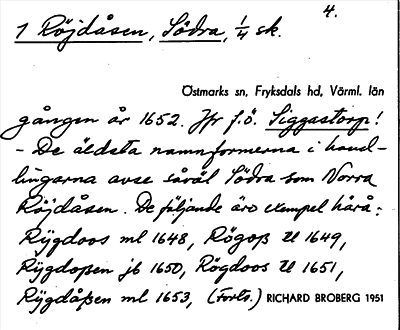 4.
1 Röjdåsen, Södra, 1/4 sk.
Östmarks sn, Fryksdals hd, Värml. län
gången år 1652. Jfr f.ö. Siggastorp!
- De äldsta namnformerna i hand-
lingarna avse såväl Södra som Norra
Röjdåsen. De följande äro exempel härå:
Rÿgdoos ml 1648, Rögoß tl 1649,
Rÿgdoßen jb 1650, Rögdoos tl 1651,
Rÿgdåßen ml 1653, (Forts.) RICHARD BROBERG 1951